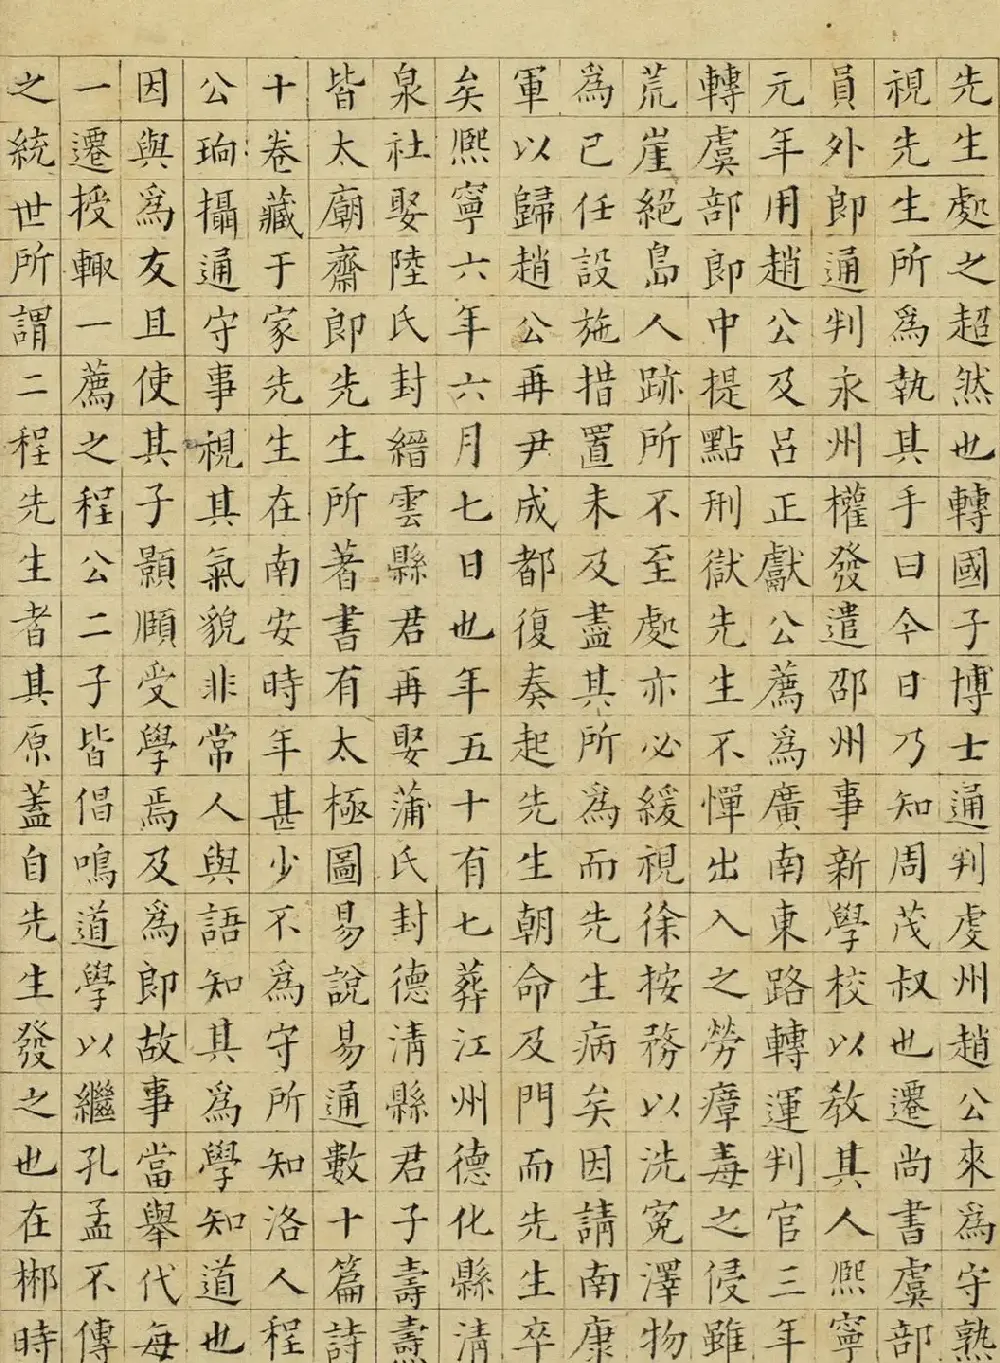 先生處之超然也轉國子博士通判虔州趙公來為守熟
視先生所為執其手曰今日乃知周茂叔也遷尚書虞部
員外郎通判永州權發遣邵州事新學校以教其人熙寧
元年用趙公及呂正獻公薦為廣南東路轉運判官三年
轉虞部郎中提點刑獄先生不憚出入之勞瘴毒之侵雖
荒崖絕島人跡所不至處亦必緩視徐按務以洗冤澤物
為已任設施措置未及盡其所為而先生病矣因請南康
軍以歸趙公再尹成都復奏起先生朝命及門而先生卒
矣熈寧六年六月七日也年五十有七葬江州德化縣清
泉社娶陸氏封縉雲縣君再娶蒲氏封德清縣君子壽燾
皆太廟齋郎先生所著書有太極圖易說易通數十篇詩
十卷藏于家先生在南安時年甚少不為守所知洛人程
公珦攝通守事視其氣貌非常人與語知其為學知道也
因與為友且使其子顥頤受學焉及為郎故事當舉代每
一遷授輙一薦之程公二子皆倡鳴道學以繼孔孟不傳
之統世所謂二程先生者其原蓋自先生發之也在郴時